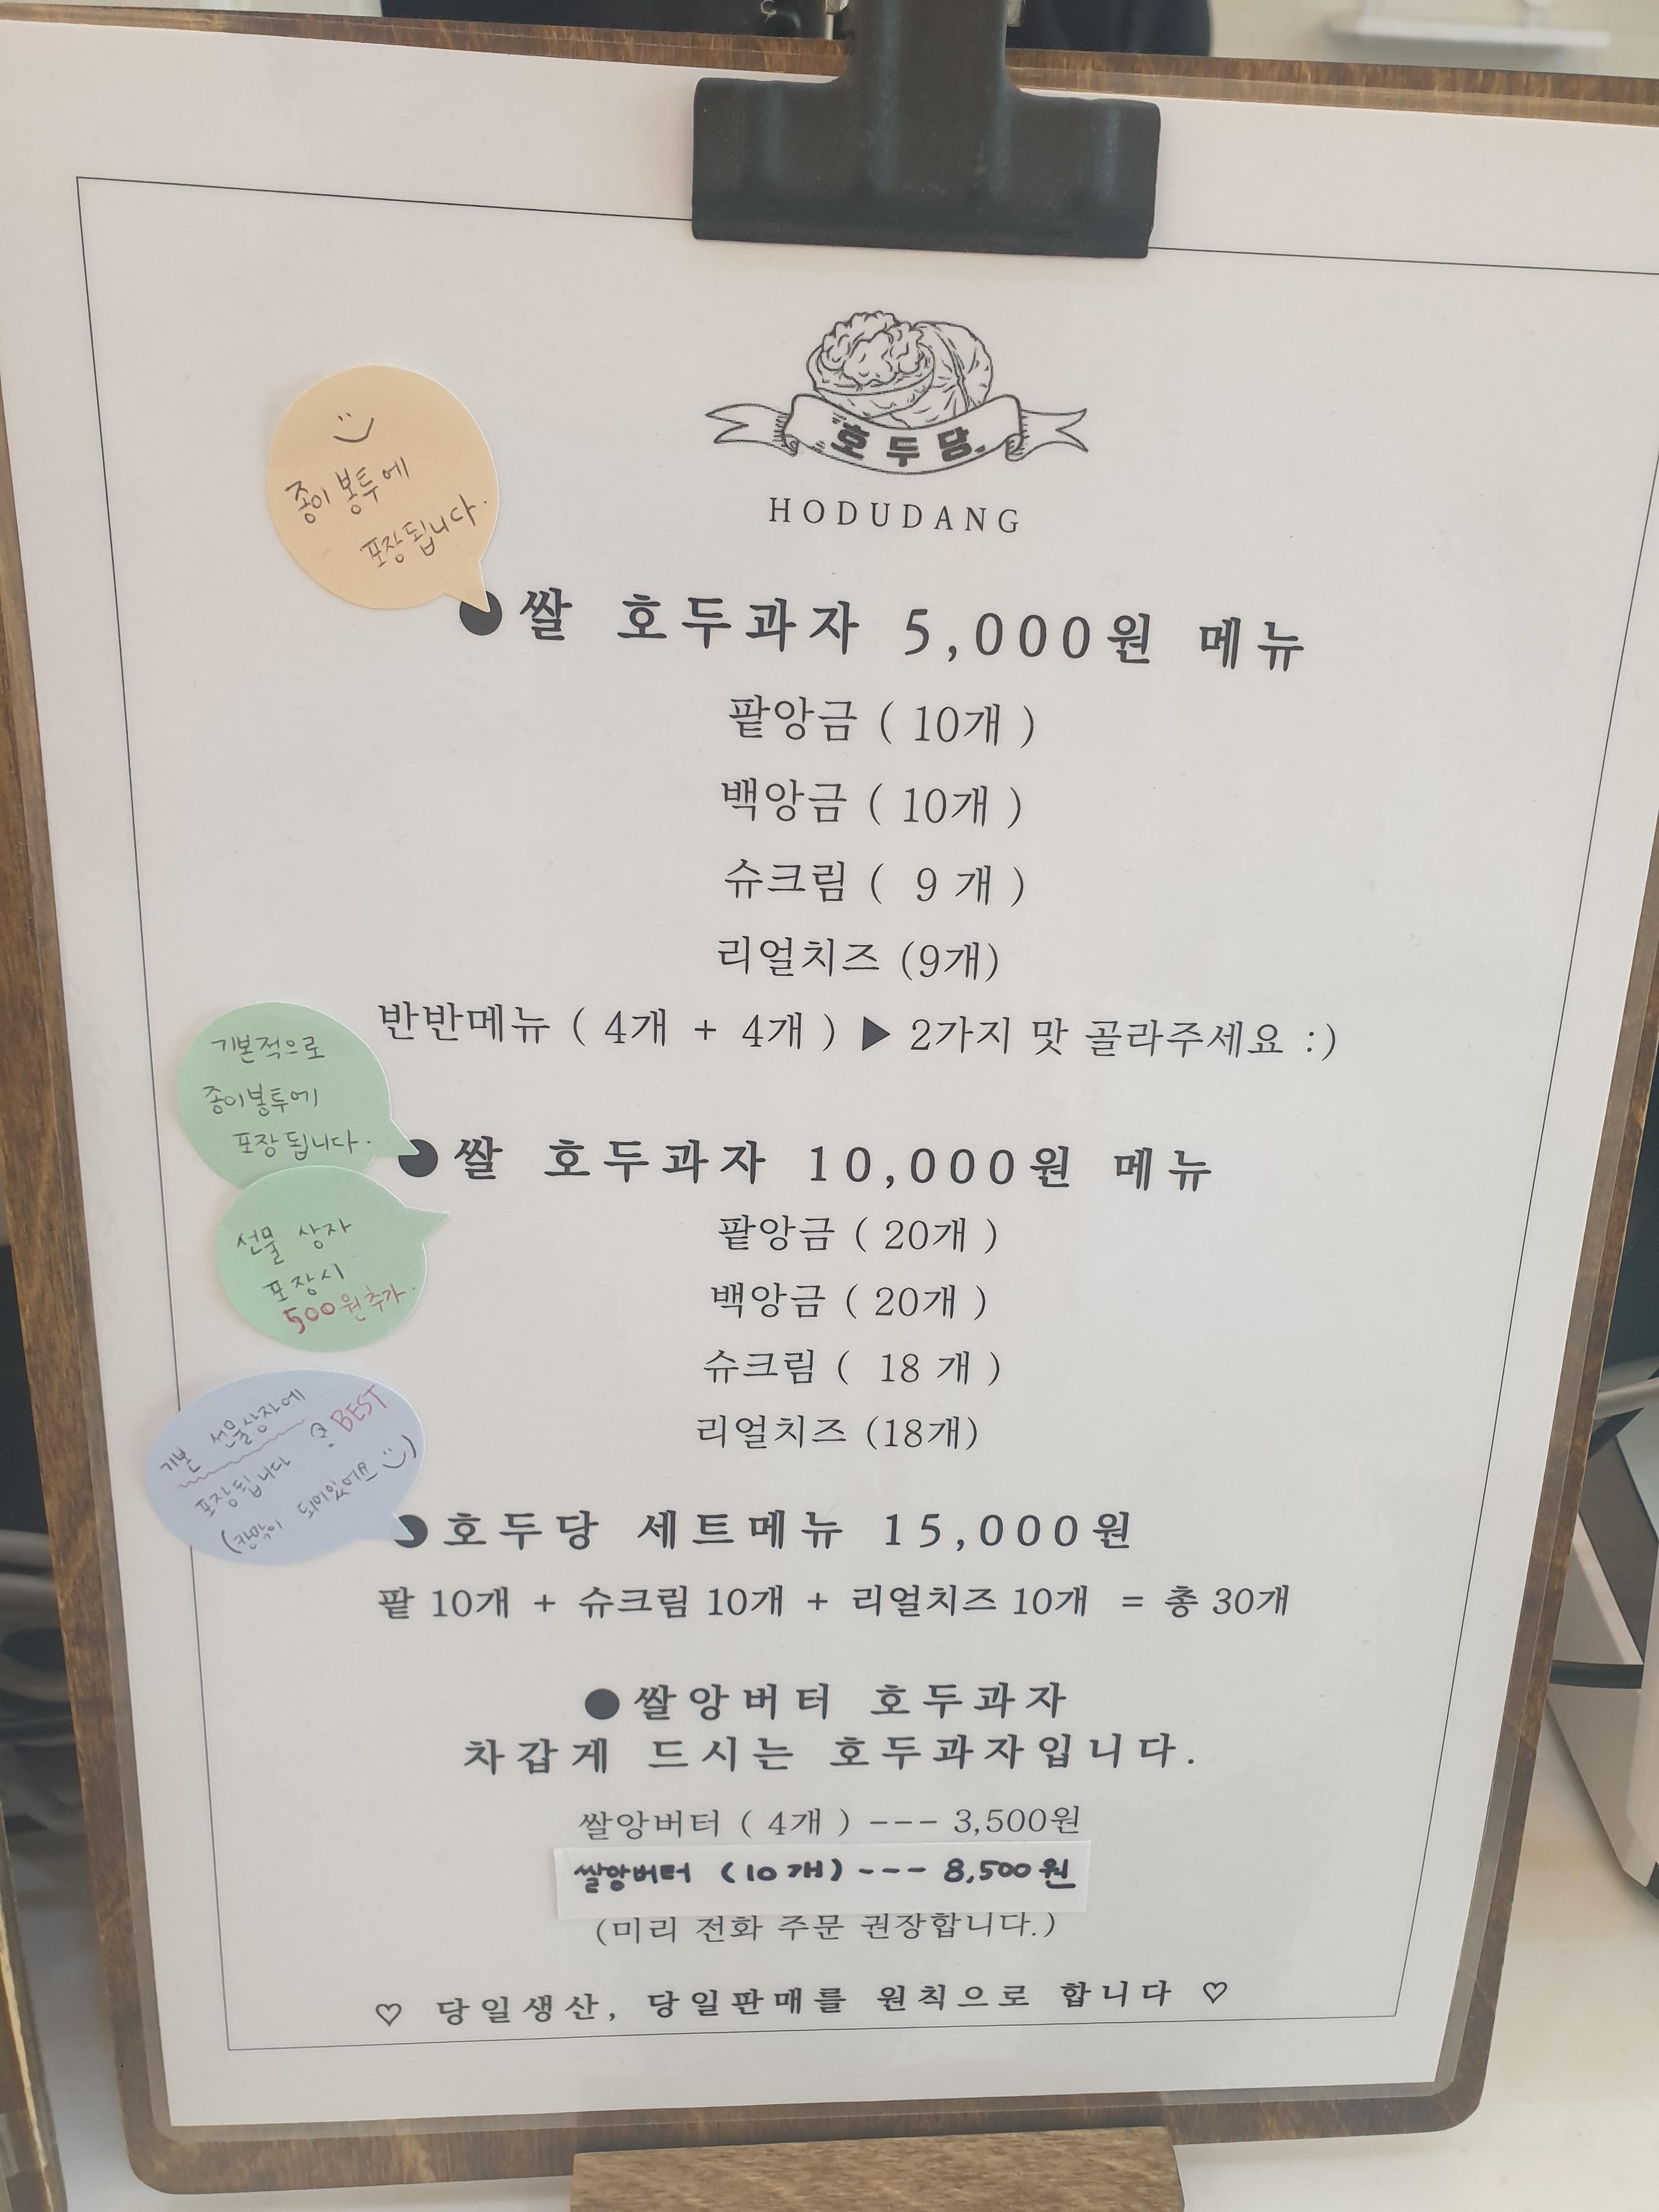 호두당
HODUDANG
종이 봉투에
포장됩니다.
●쌀 호두과자 5,000원 메뉴
팥앙금 ( 10개 )
백앙금 ( 10개 )
슈크림 ( 9 개 )
리얼치즈 (9개)
반반메뉴 ( 4개 + 4개 ) ▶ 2가지 맛 골라주세요 :)
기본적으로
종이봉투에
포장됩니다.
●쌀 호두과자 10,000원 메뉴
선물 상자
포장시
500원 추가.
팥앙금 ( 20개 )
백앙금 ( 20개 )
슈크림 ( 18 개 )
리얼치즈 (18개)
BEST
기본 선물상자에
포장됩니다
(칸막이 되어있어요
●호두당 세트메뉴 15,000원
팥 10개 + 슈크림 10개 + 리얼치즈 10개 = 총 30개
●쌀앙버터 호두과자
차갑게 드시는 호두과자입니다.
쌀앙버터 ( 4개 ) --- 3,500원
쌀앙버터 (10개) --- 8,500원
(미리 전화 주문 권장합니다.)
♡ 당일생산, 당일판매를 원칙으로 합니다 ♡